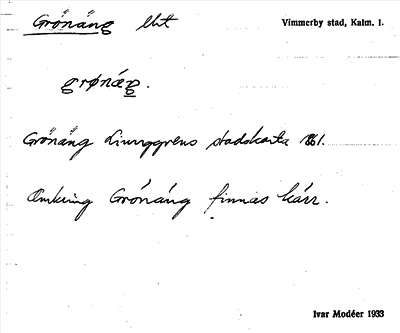 Grönäng
Vimmerby stad, Kalm. l.
grønäŋ.
Grönäng Ljunggrens stadskarta 1861.
Omkring Grönäng finnas kärr.
Ivar Modéer 1933